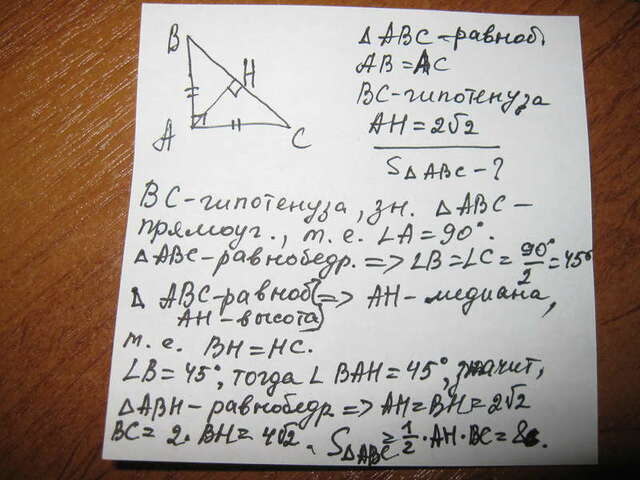 B
H
A
C
△ABC-равноб.
AB=AC
BC-гипотенуза
AH=2√2
S△ABC-?
BC-гипотенуза, зн. △ABC-
прямоуг., т.е. ∠A=90°.
△ABC-равнобедр. => ∠B=∠C= 90°/2 =45°
△ ABC-равноб. => AH-медиана,
AH-высота
т.е. BH=HC.
∠B=45°, тогда ∠BAH=45°, значит,
△ABH-равнобедр => AH=BH=2√2
BC=2·BH=4√2. S△ABC=1/2·AH·BC=8.